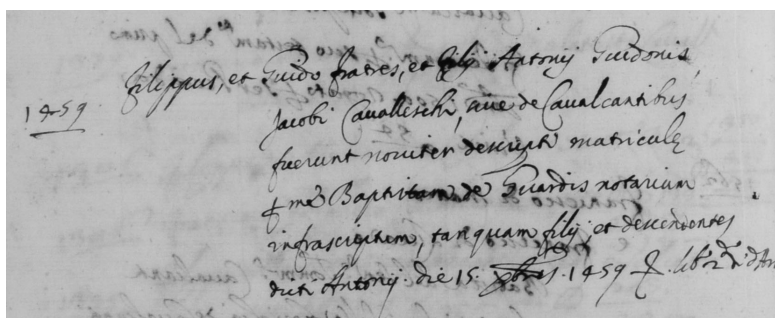 filippus, et Guido fratres, et filij Antonij Guidonis
1459
Jacobi Cavalleschi, sive de Cavalcantibus
fuerunt noviter descripti matriculę
p me Baptistam de Guardis notarium
infrascriptum, tanquam filij et descendentes
dicti Antonij. die 15. 1459